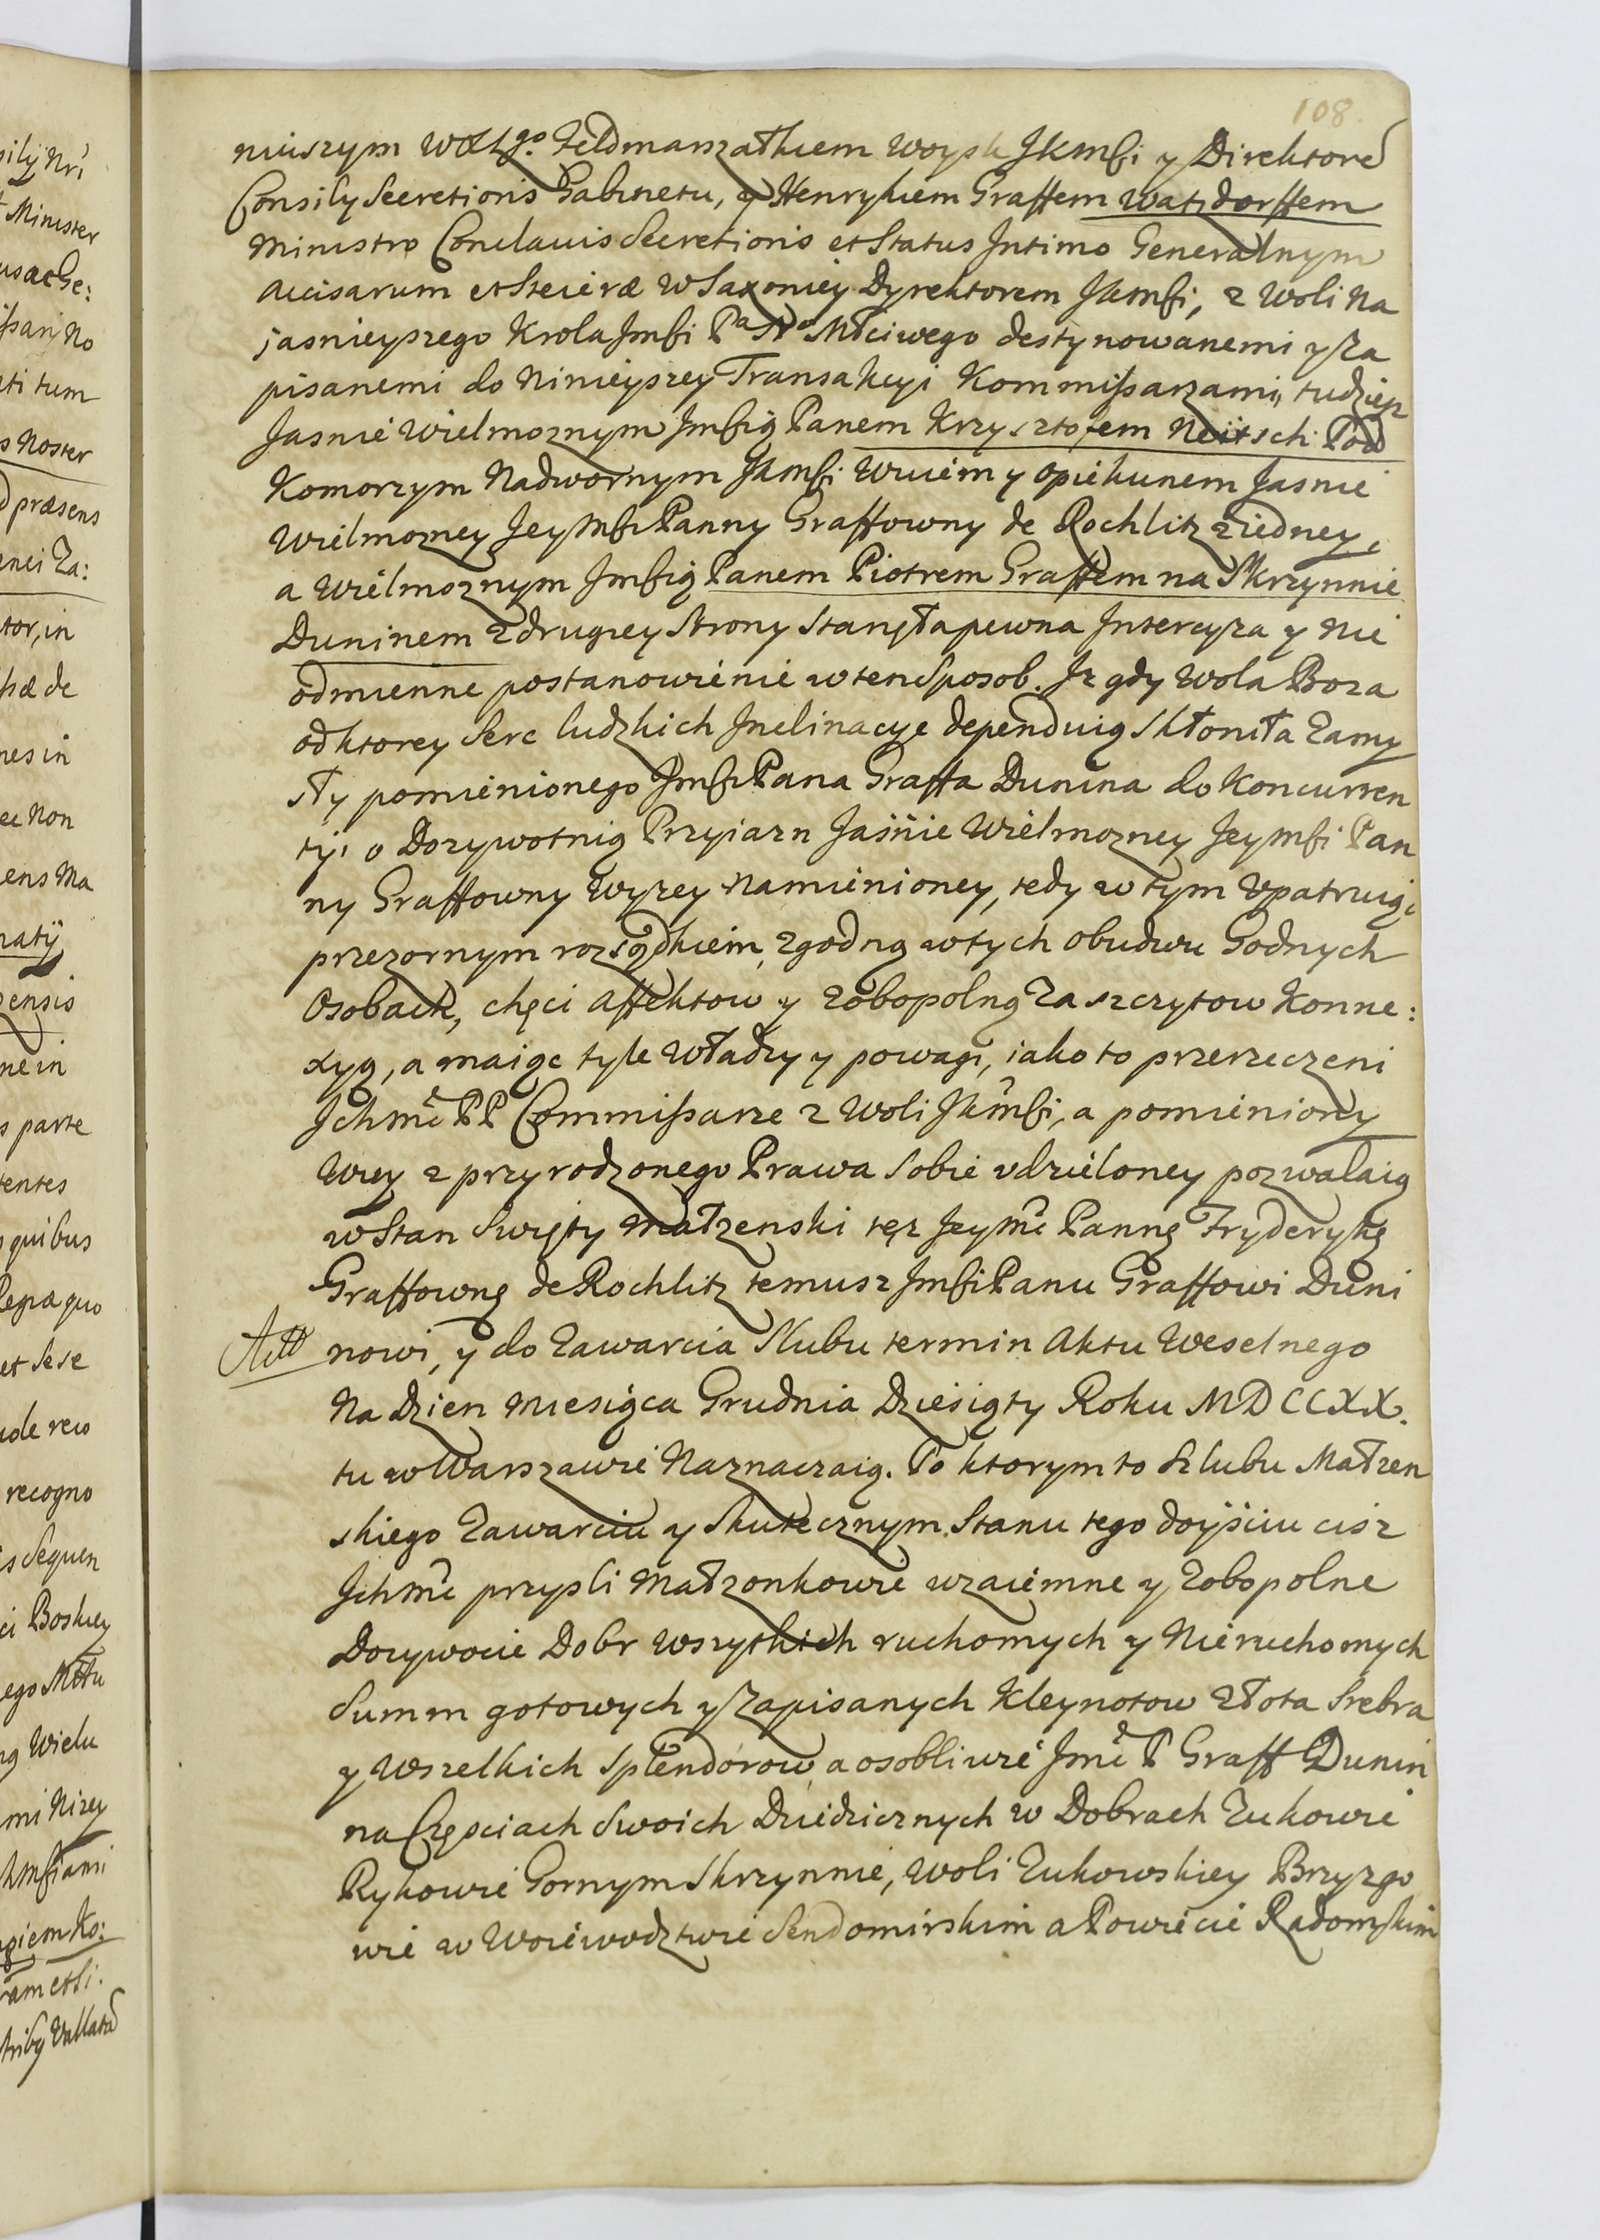 108.
niuszym WXLgo. Feldmarszałkiem Woysk JKMsci y Direktorē
Consily Secretioris Gabinetu, y Henrykiem Graffem Watzdorffem
Ministro Conclavis Secretioris et Status Intimo Generalnym
Accisarum et Steieræ w Saxoniey Dyrektorem JKMsci, z Woli Na
jasnieyszego Krola Jmsci Pa No Młciwego destynowanemi y Za
pisanemi do Ninieyszey Transakcyi Kommissarzami, tudziesz
Jasnie Wielmoznym Jmscią Panem Krzysztofem Neitsch Pod
Komorzym Nadwornym JKMsci Wuiem y Opiekunem Jasnie
Wielmozney Jeymsci Panny Graffowny de Rochlitz z iedney,
a Wielmoznym Jmscią Panem Piotrem Graffem na Skrzynnie
Duninem z drugiey Strony Stanęła pewna Intercyza y Nie
odmienne postanowienie w ten Sposob. Jz gdy Wola Boza
od ktorey Serc ludzkich Inclinacye dependuią Skłoniła Zamy
sły pomienionego Jmsci Pana Graffa Dunina do Koncurren
tyi o Dozywotnią Przyiazn Jaśnie Wielmozney Jeymsci Pan
ny Graffowny Wyzey Namienioney, tedy w tym Vpatruią,
przezornym rozsądkiem, zgodną w tych obudwu Godnych
Osobach, chęci affektow y Zobopolną Zaszczytow Konne:
xyą, a maiąc tyle Władzy y powagi, iako to przerzeczeni
Ichmć PP Commissarze z Woli JKmsci, a pomieniony
Wuy z przyrodzonego Prawa Sobie vdzieloney pozwalaią
w Stan Swięty Małzenski tęz Jeymć Pannę Fryderykę
Graffownę de Rochlitz temusz Jmsci Panu Graffowi Duni
nowi, y do Zawarcia Slubu termin Aktu Weselnego
Na Dzien Miesiąca Grudnia Dziesiąty Roku MDCCXX.
tu w Warszawie Naznaczaią. Po ktorym to Szlubu Małzen
skiego Zawarciu y Skutecznym Stanu tego doyściu cisz
Ichmć przysli Małzonkowie wzaiemne y Zobopolne
Dozywocie Dobr wszytkich ruchomych y Nieruchomych
Summ gotowych y Zapisanych Kleynotow Złota Srebra
y Wszelkich Splendorow, a osobliwie Jmć P Graff Dunin
na Częsciach Swoich Dziedzicznych w Dobrach Zukowie
Rykowie Gornym Skrzynnie, Woli Zukowskiey Brzyzgo
wie w Woiewodztwie Sendomirskim a Powiecie Radomskim